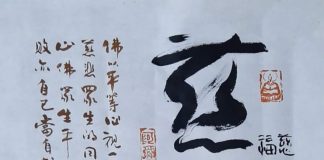 慈
福
慈
佛以平等心視一
慈悲眾生的同
心佛眾生平
敗亦自己當自